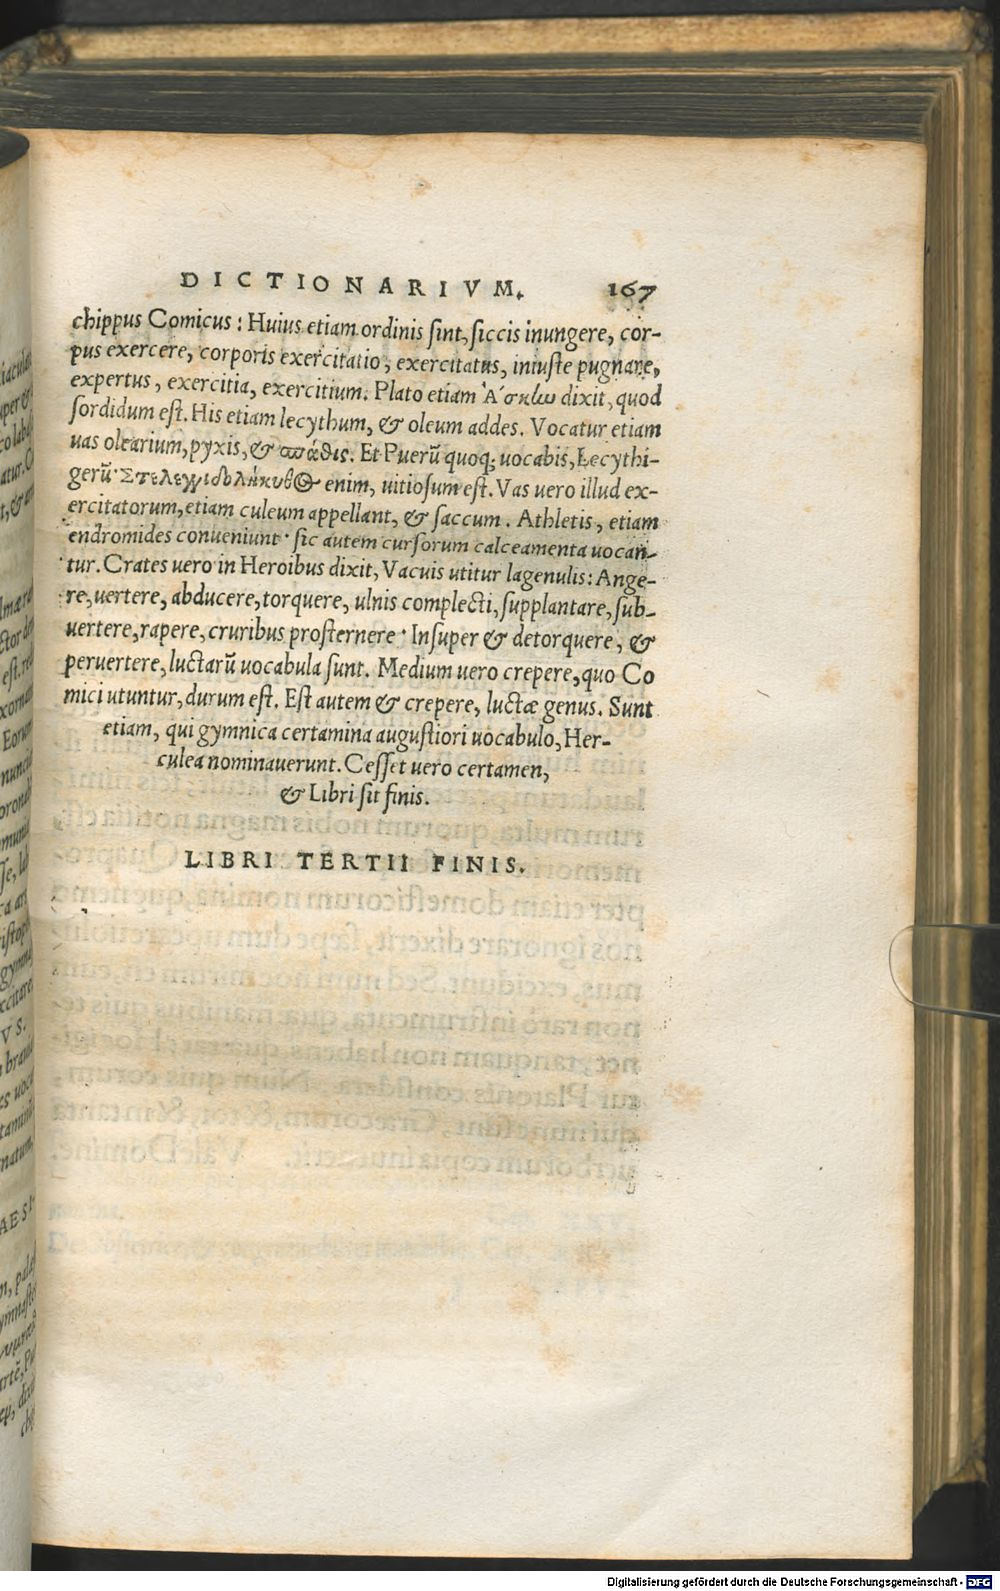 DICTIONARIVM. 167
chippus Comicus: Huius etiam ordinis ſint, ſiccis inungere, cor-
pus exercere, corporis exercitatio, exercitatus, iniuſte pugnare,
expertus, exercitia, exercitium. Plato etiam Ἀσκῶ dixit, quod
ſordidum eſt. His etiam lecythum, & oleum addes. Vocatur etiam
uas olearium, pyxis, & σπάθις. Et Puerū quoq; uocabis, Lecythi-
gerū· Στελεγγιδολήκυθος enim, uitioſum eſt. Vas uero illud ex-
ercitatorum, etiam culeum appellant, & ſaccum. Athletis, etiam
endromides conueniunt· ſic autem curſorum calceamenta uocan-
tur. Crates uero in Heroibus dixit, Vacuis utitur lagenulis: Ange-
re, uertere, abducere, torquere, ulnis complecti, ſupplantare, ſub-
uertere, rapere, cruribus proſternere· Inſuper & detorquere, &
peruertere, luctarū uocabula ſunt. Medium uero crepere, quo Co
mici utuntur, durum eſt. Eſt autem & crepere, luctæ genus. Sunt
etiam, qui gymnica certamina auguſtiori uocabulo, Her-
culea nominauerunt. Ceſſet uero certamen,
& Libri ſit finis.
LIBRI TERTII FINIS.
Digitalisierung gefördert durch die Deutsche Forschungsgemeinschaft - DFG